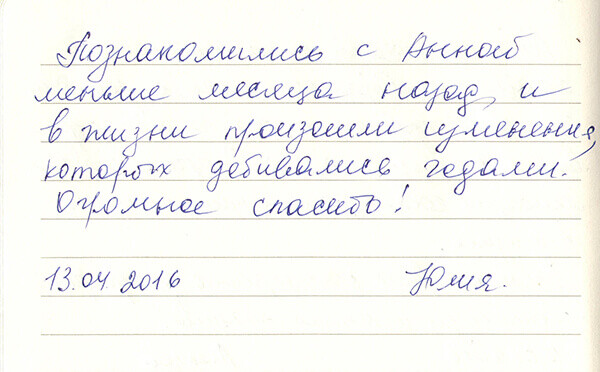 Познакомились с Анной
меньше месяца назад, и
в жизни произошли изменения,
которых добивались годами.
Огромное спасибо!
13.04.2016 Юлия.